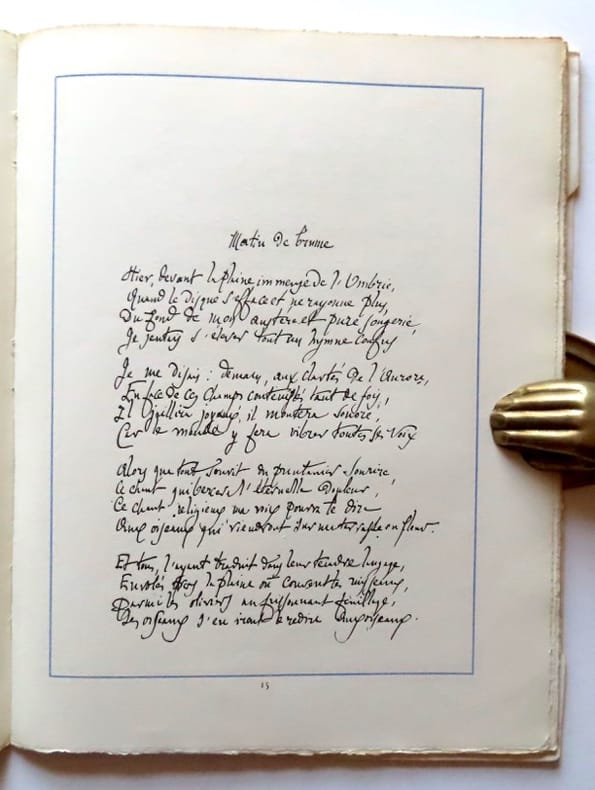 Matin de brume
Hier, devant la plaine immense de l'Ombrie,
Quand le disque s'efface et ne rayonne plus,
Du fond de mon austère et pure songerie,
Je sentis s'élever tout un hymne confus
Je me disais : demain, aux clartés de l'Aurore,
En face de ces champs contemplés tant de fois,
Il jaillira joyeux, il montera sonore,
Car le monde y fera vibrer toutes ses voix
Alors que tout sourit du printanier sourire,
Ce chant qui bercera l'éternelle douleur,
Ce chant religieux ma voix pourra le dire
Aux oiseaux qui viendront sur ma terrasse en fleur.
Et tous, l'ayant traduit dans leur tendre langage,
Envolés dans la plaine où courent les ruisseaux,
Parmi les oliviers au frissonnant feuillage,
Les oiseaux s'en iront le redire aux oiseaux.
15